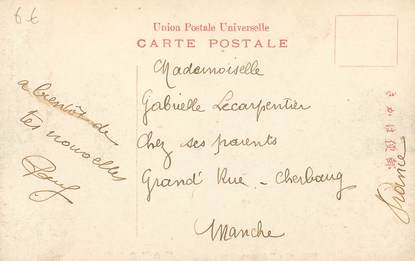 6€
Union Postale Universelle
CARTE POSTALE
a bientôt de
tes nouvelles
Mademoiselle
Gabrielle Lecarpentier
Chez ses parents
Grand' Rue - Cherbourg
Manche
France